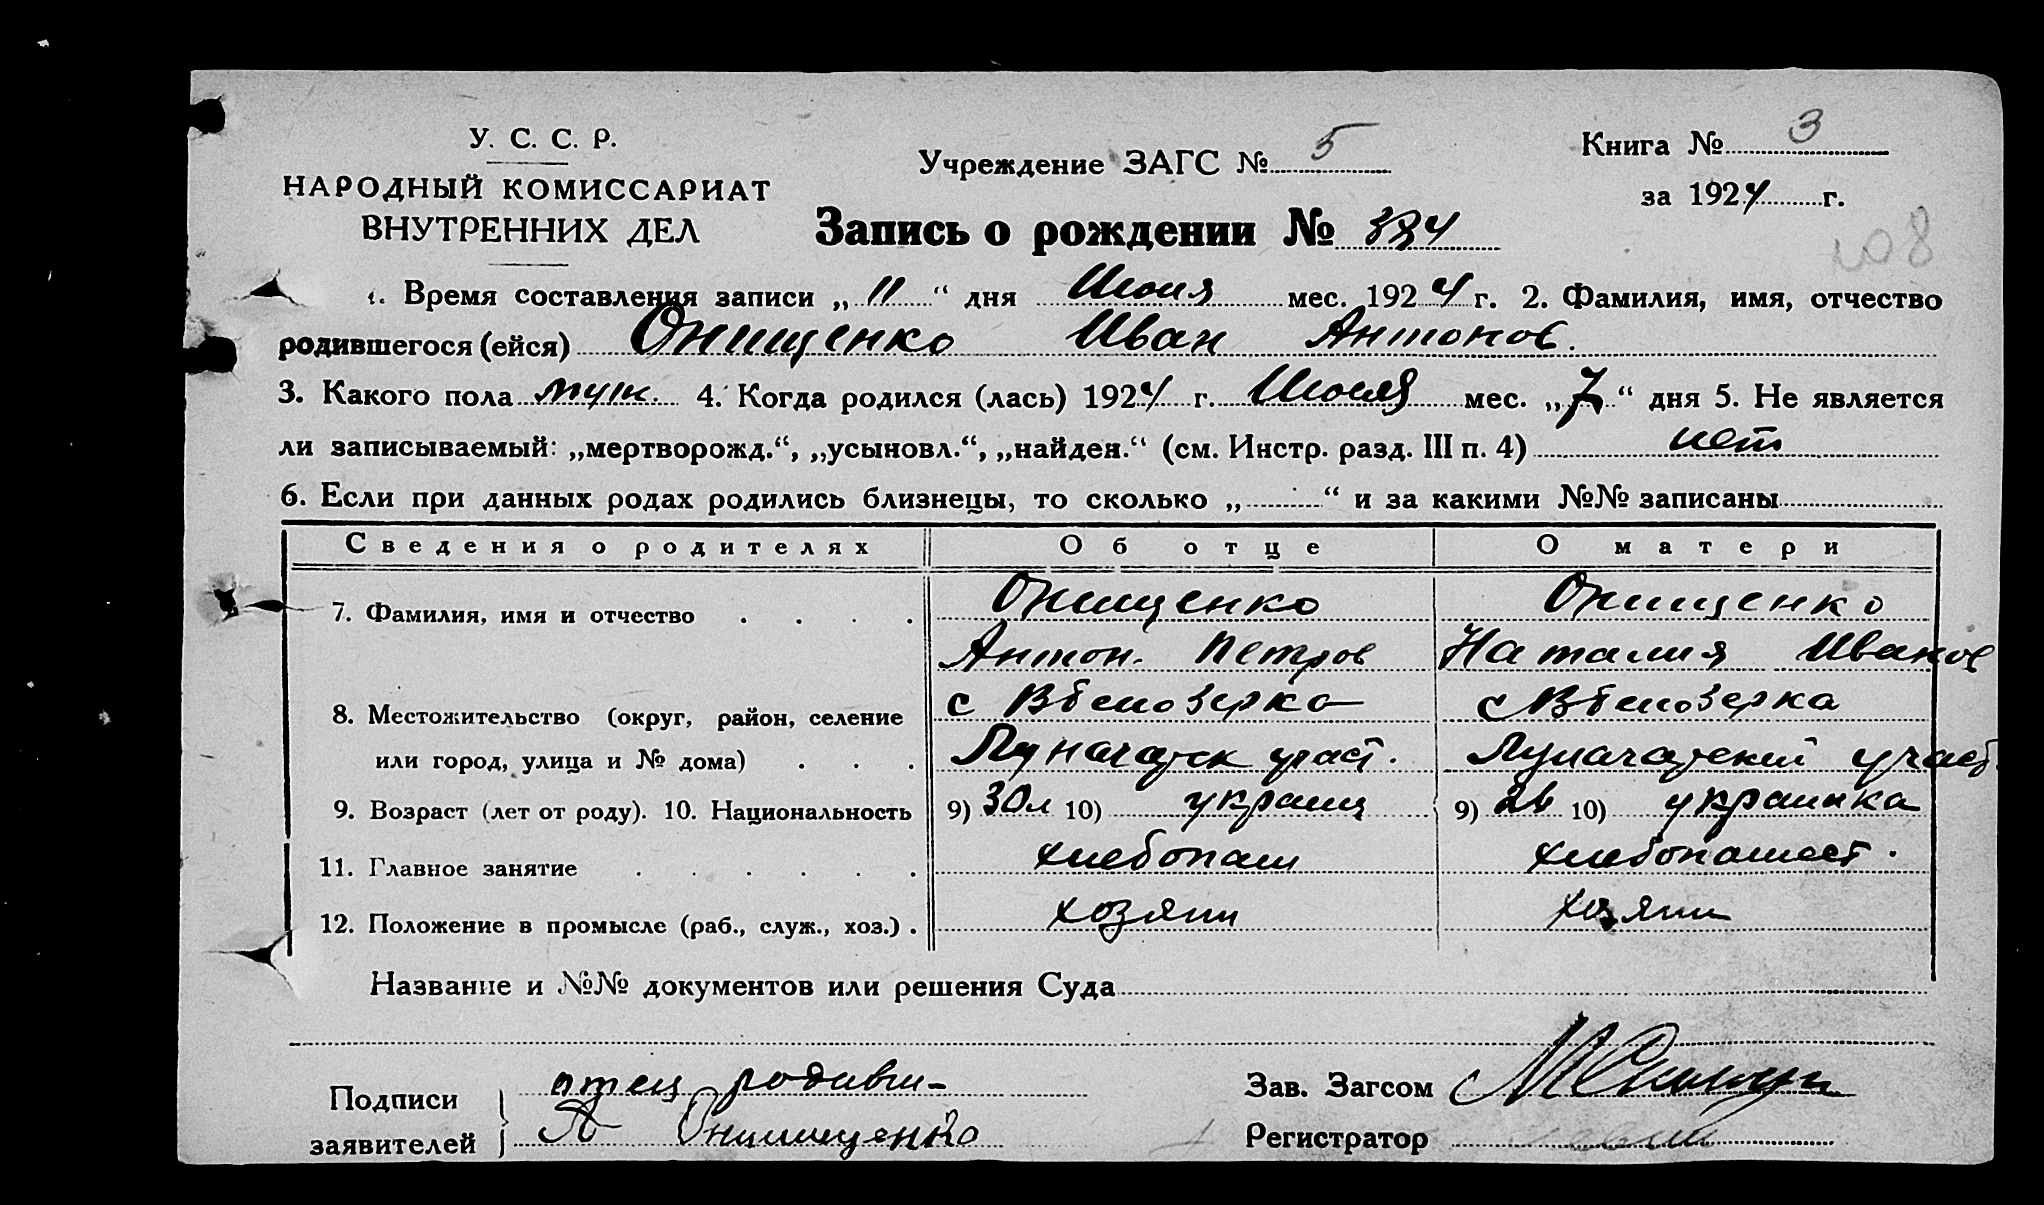 У. С. С. Р.
НАРОДНЫЙ КОМИССАРИАТ
ВНУТРЕННИХ ДЕЛ
Учреждение ЗАГС № 5
Книга № 3
за 1924 г.
Запись о рождении № 384
108
1. Время составления записи „ 11 “ дня Июля мес. 1924 г. 2. Фамилия, имя, отчество
родившегося (ейся) Онищенко Иван Антонов.
3. Какого пола муж. 4. Когда родился (лась) 1924 г. Июля мес. „ 7 “ дня 5. Не является
ли записываемый: „мертворожд.“, „усыновл.“, „найден.“ (см. Инстр. разд. III п. 4) нет
6. Если при данных родах родились близнецы, то сколько „ “ и за какими №№ записаны
Сведения о родителях Об отце О матери
7. Фамилия, имя и отчество Онищенко Онищенко
Антон. Петров Наталия Иванов
8. Местожительство (округ, район, селение с Вбелозерка с Вбелозерка
или город, улица и № дома) участ. участ.
9. Возраст (лет от роду). 10. Национальность 9) 30л 10) украинц 9) 10) украинка
11. Главное занятие хлебопаш хлебопашест.
12. Положение в промысле (раб., служ., хоз.) хозяин хозяин
Название и №№ документов или решения Суда
Подписи заявителей отец родивш-
А Онишщенко
Зав. Загсом
Регистратор